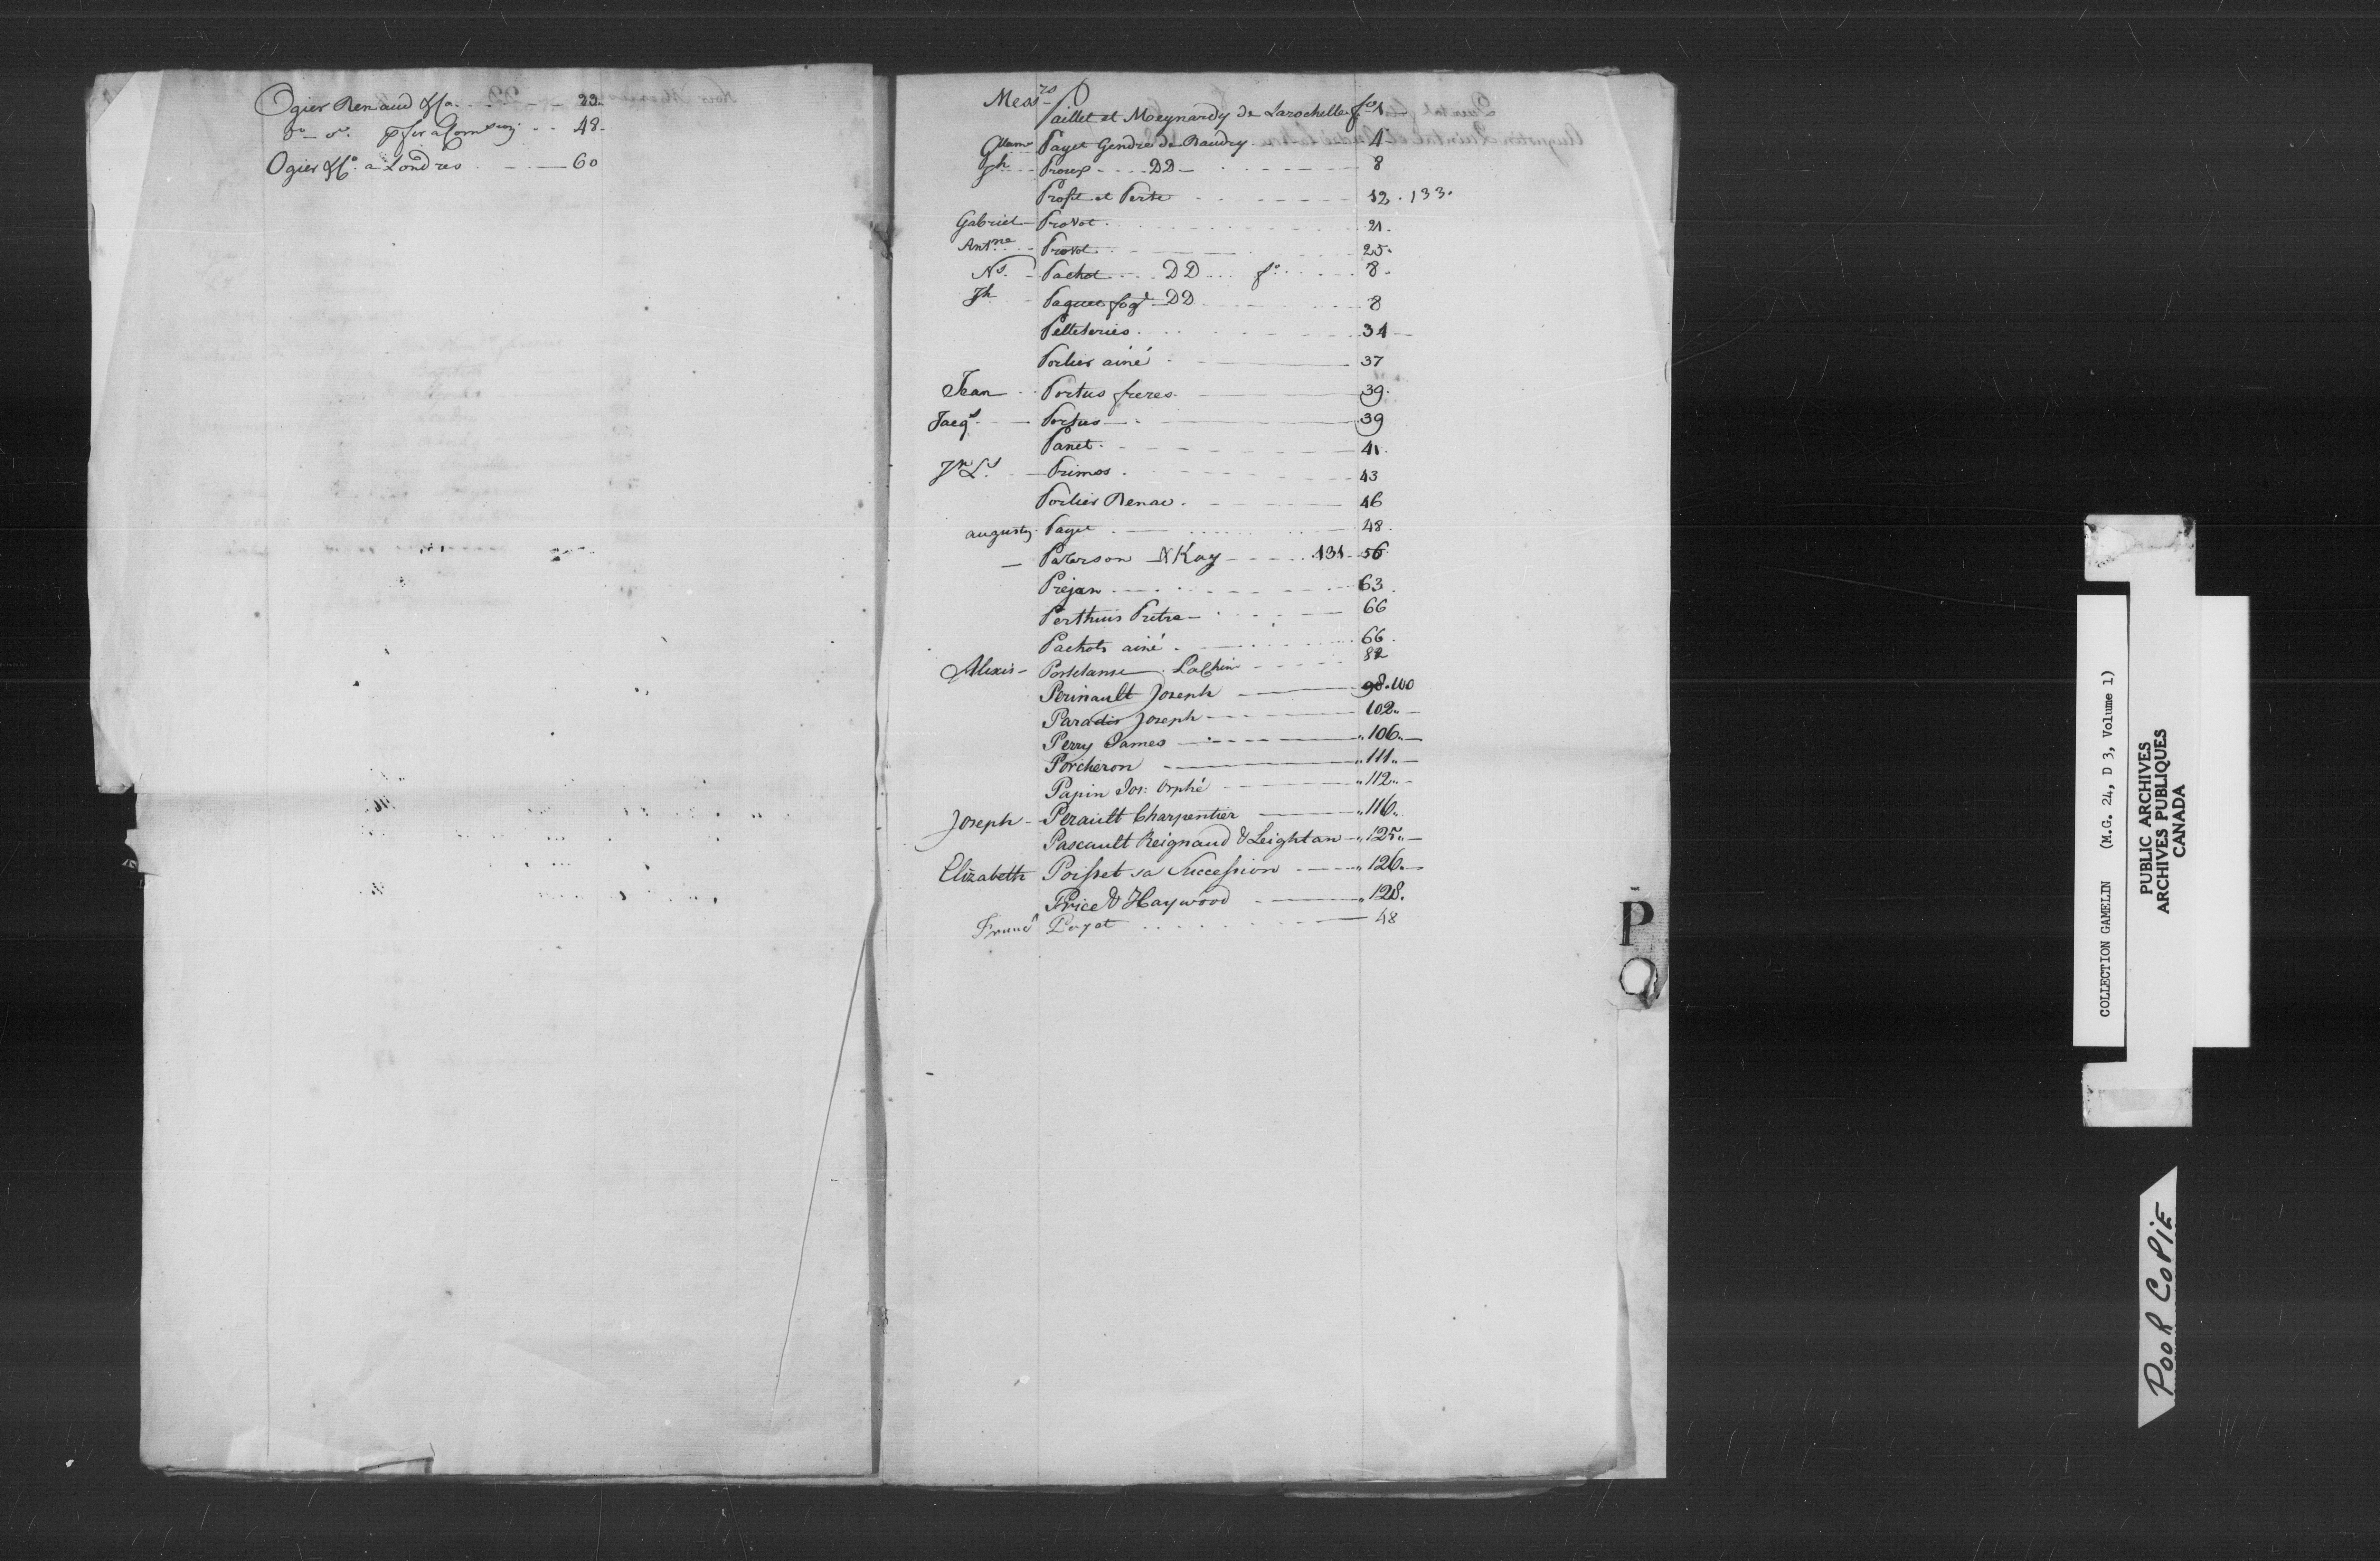 Ogier Renaud & Ca. - - 22.
Do - do. pr. leur a Comp - - 48.
Ogier & Co. a Londres - - 60
Messrs Paillet et Meynardy de Larochelle fo 1
Paget Gendre de Baudry 4
Jh Proux - - DD - 8
Profit et Perte 12 . 133.
Gabriel - Provot 21.
Antne - Provot 25.
Ns. - Pachot - DD fo 8.
Jh - Paquet DD 8
Pelleteries 34
Porlier ainé 37
Jean - Portus freres 39.
Jacqs. - Portus 39
Panet 41.
Jn Ls. - Primos 43
Porlier Benac 46
augustn. Paget 48.
- Paterson & Kay 131 - 56.
Prejan 63.
Perthuis Pretre 66
Pachots ainé 66.
Alexis - Portelanse LaChine 82
Perinault Joseph 98.100
Paradis Joseph 102.. -
Perry James - " 106.. -
Porcheron " 111.. -
Papin Jos: Orphé " 112.. -
Joseph - Perault Charpentier " 116..
Pascault Reignaud & Leightan " 125.. -
Elizabeth Poisset sa Succession " 126.. -
Price & Haywood " 128.
Payet 48
P
Q
COLLECTION GAMELIN (M.G. 24, D 3, Volume 1)
PUBLIC ARCHIVES
ARCHIVES PUBLIQUES
CANADA
POOR COPIE